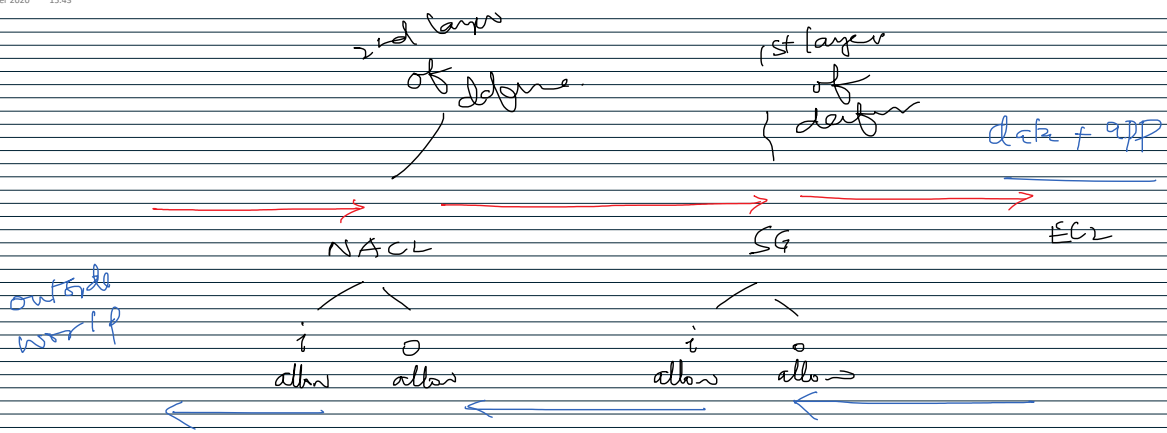 2020 13:45
2nd layer
of defense.
1st layer
of
defense
data + app
NACL
SG
EC2
outside
world
i
o
i
o
allow
allow
allow
allow